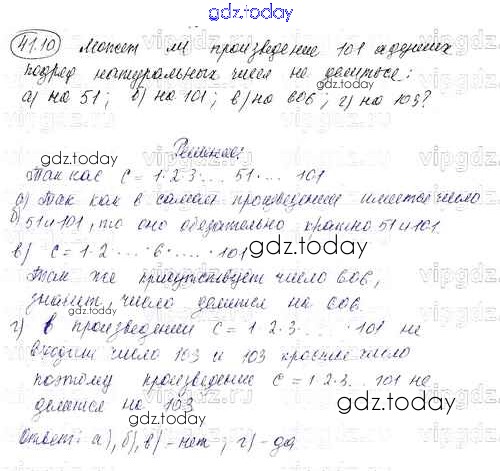 gdz.today
41.10 Может ли произведение 101 идущих
подряд натуральных чисел не делиться:
а) на 51; б) на 101; в) на 606; г) на 103?
gdz.today
Решение:
Так как C = 1·2·3·... 51·... 101
а) Так как в самом произведении имеется число
б) 51 и 101, то оно обязательно кратно 51 и 101.
в) C = 1·2·...·6·...·101
gdz.today
Так же присутствует число 606,
значит, число делится на 606.
gdz.today
г) В произведении C = 1·2·3·...·101 не
входит число 103 и 103 кратное число
поэтому произведение C = 1·2·3... 101 не
делится на 103
gdz.today
Ответ: а), б), в) - нет; г) - да
gdz.today